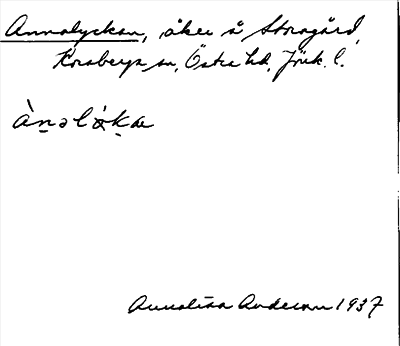 Annalyckan, åker å Storagård,
Korsberga sn, Östra hd, Jönk. l.
ànəlỳkæ
Annalisa Anderson 1937